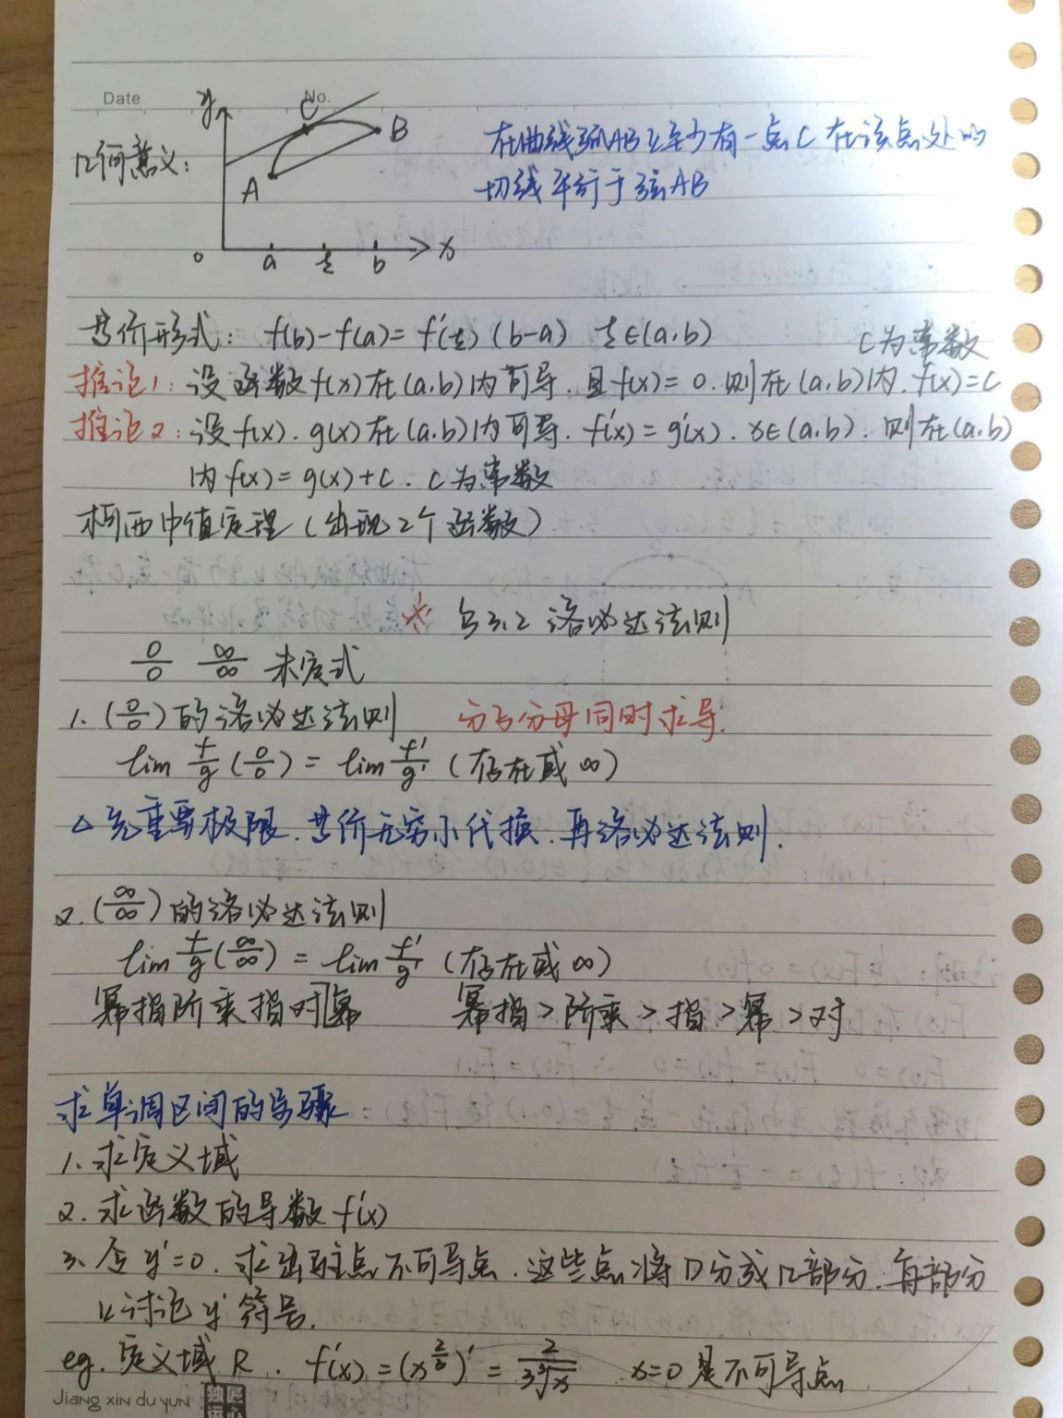 Date
No.
y
C
B
几何意义:
A
在曲线弧AB上至少有一点C在该点处的
切线平行于弦AB
0 a ξ b x
等价形式: f(b)-f(a)=f'(ξ)(b-a) ξ∈(a.b)
C为常数
推论1: 设函数f(x)在(a.b)内可导.且f(x)=0.则在(a.b)内.f(x)=C
推论2: 设f(x).g(x)在(a.b)内可导.f'(x)=g'(x).x∈(a.b).则在(a.b)
内f(x)=g(x)+C.C为常数
柯西中值定理(出现2个函数)
※ §3.2 洛必达法则
0/0 ∞/∞ 未定式
1.(0/0)的洛必达法则 分子分母同时求导.
lim f/g (0/0) = lim f'/g' (存在或∞)
△先重要极限.等价无穷小代换.再洛必达法则.
2.(∞/∞)的洛必达法则
lim f/g (∞/∞) = lim f'/g' (存在或∞)
幂指阶乘指对幂 幂指>阶乘>指>幂>对
求单调区间的步骤
1.求定义域
2.求函数的导数f'(x)
3.令y'=0.求出驻点不可导点.这些点将D分成几部分.每部分
上讨论y'符号.
eg.定义域R. f'(x)=(x^{2/3})'=2/(3∛x) x=0是不可导点
Jiang xin du yun